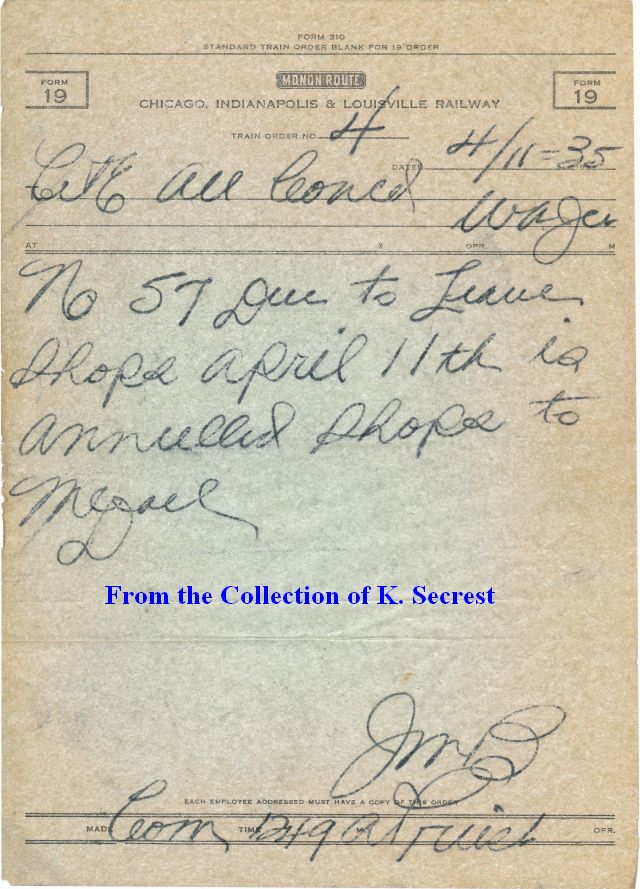 FORM 310
STANDARD TRAIN ORDER BLANK FOR 19 ORDER
FORM 19
MONON ROUTE
FORM 19
CHICAGO, INDIANAPOLIS & LOUISVILLE RAILWAY
TRAIN ORDER NO. 4
DATED 4/11-35
C&E All Concd
AT X OPR. M
No 57 Due to Leave
Shops April 11th is
annulled Shops to
From the Collection of K. Secrest
JMB
EACH EMPLOYEE ADDRESSED MUST HAVE A COPY OF THIS ORDER
MADE Com TIME 1249 A M OPR.